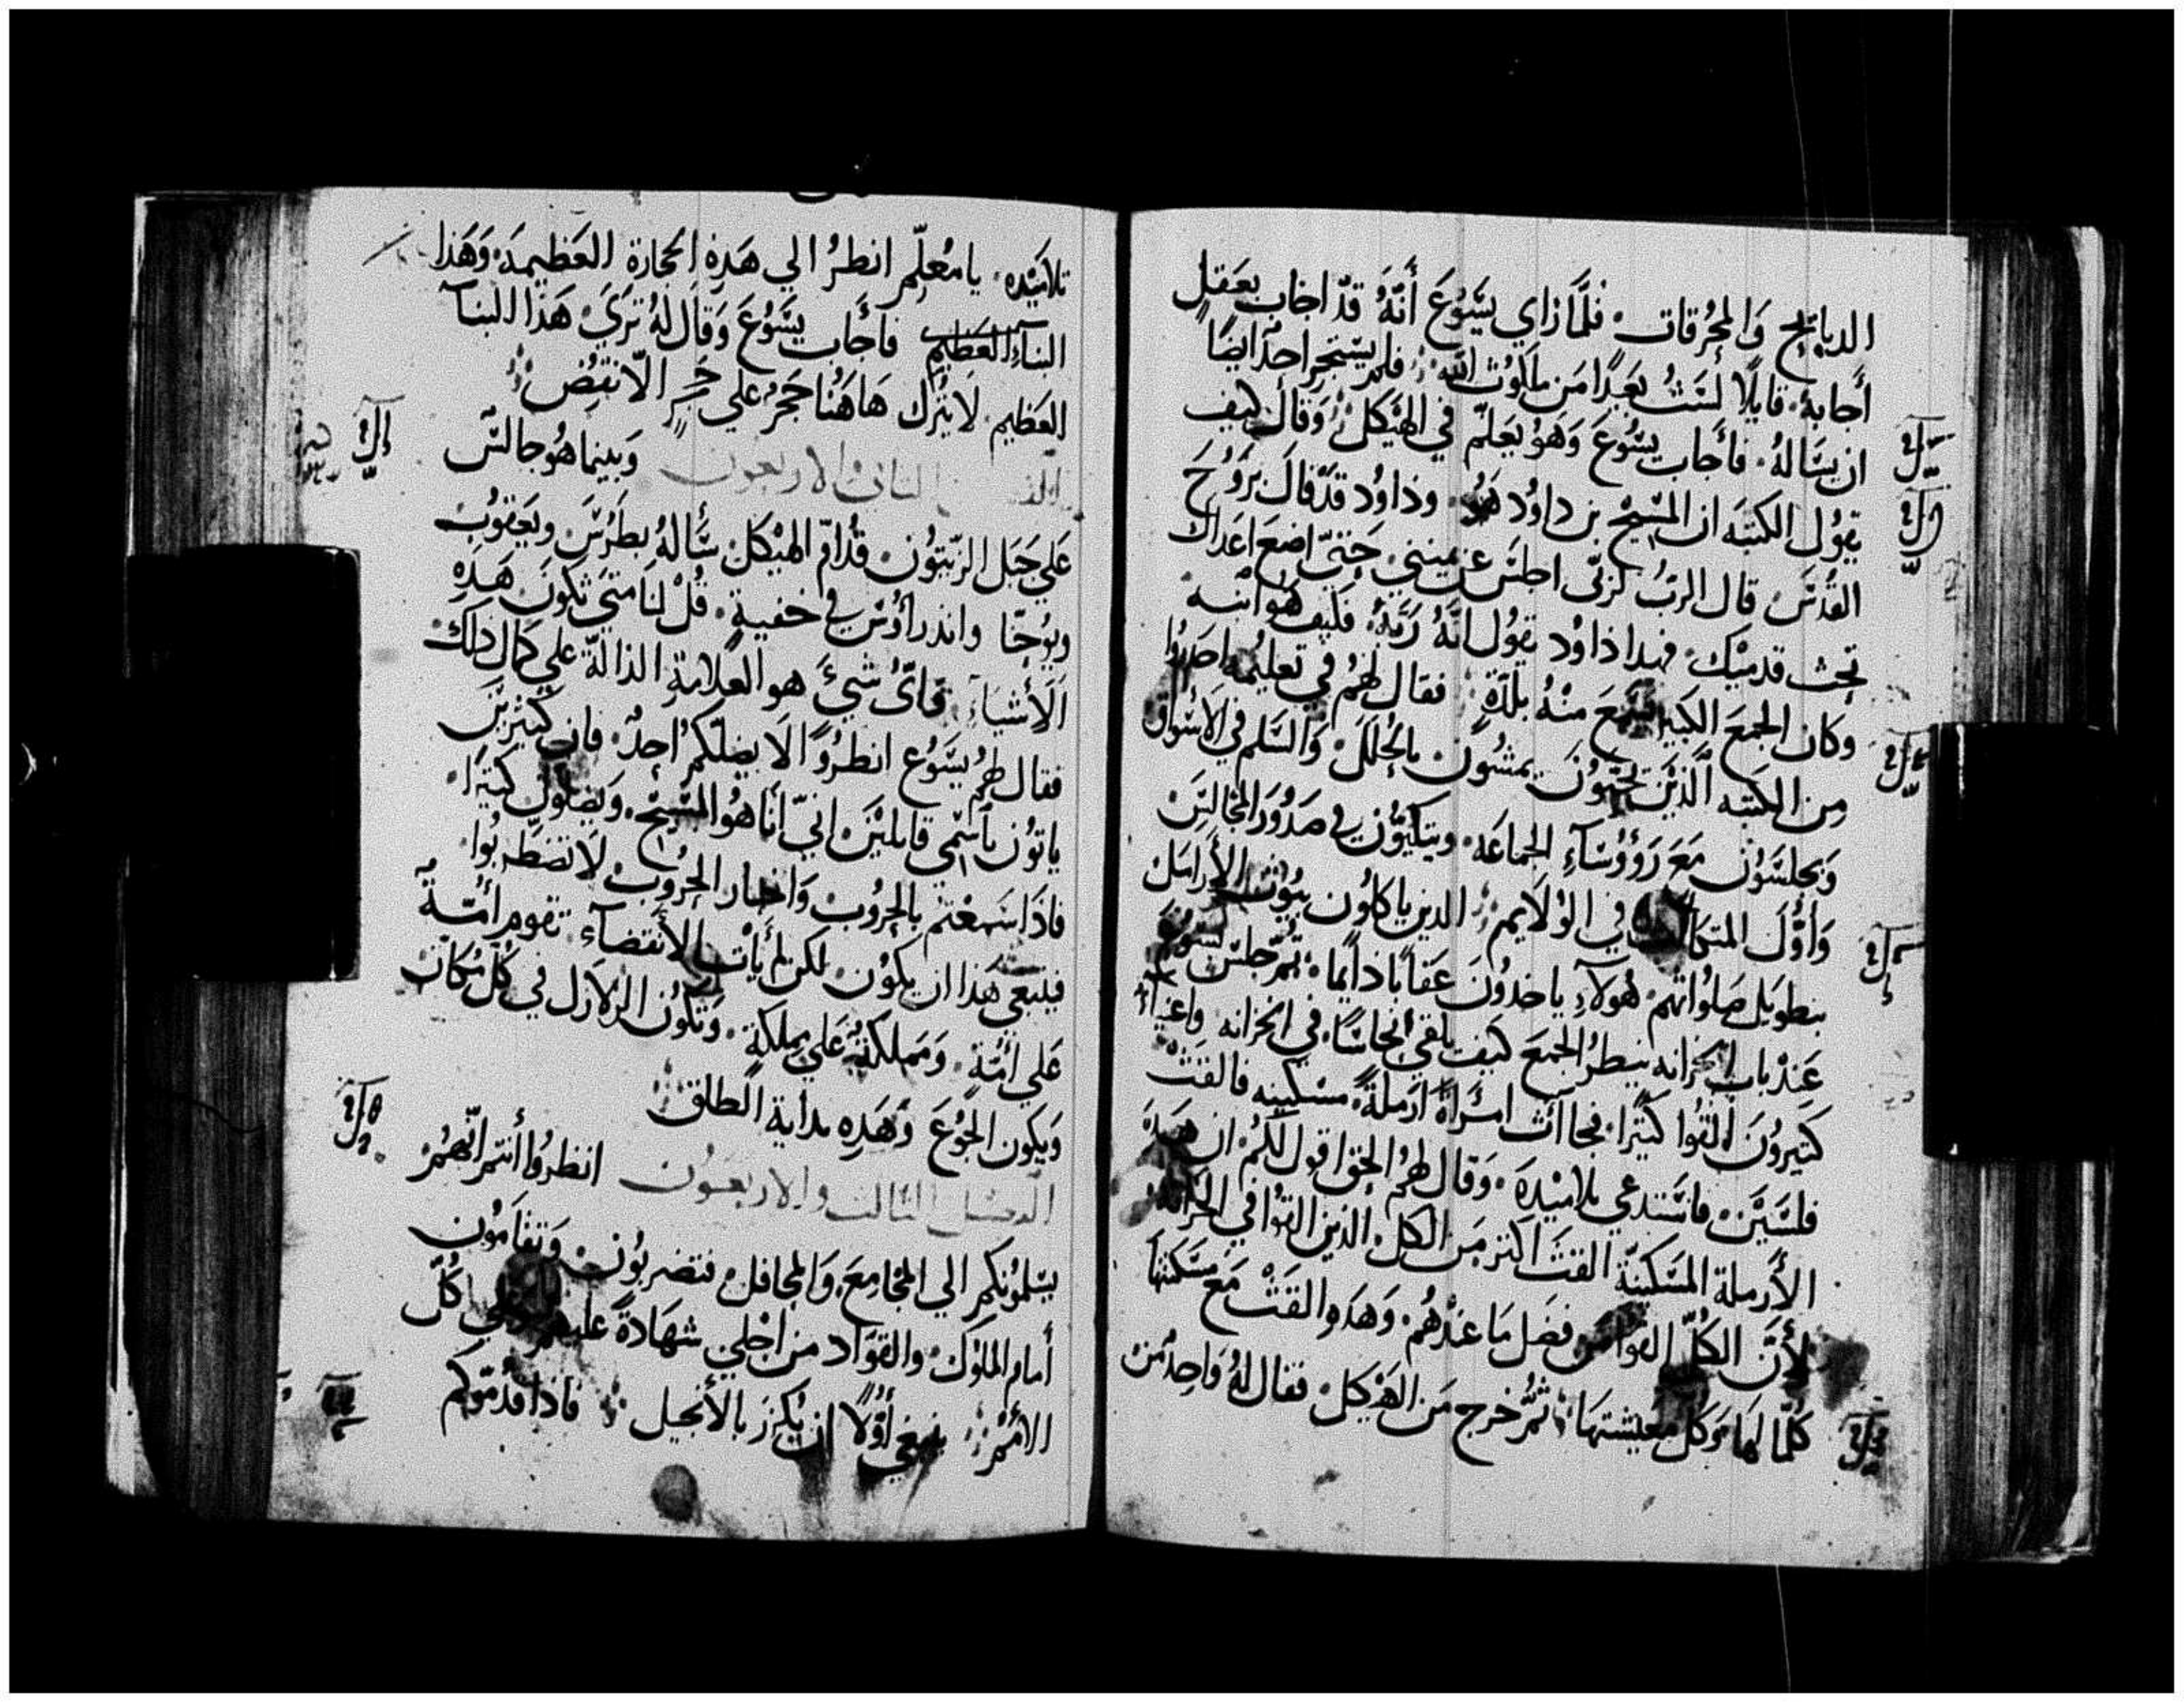 الدبايح وَالمحُرقات فلمَّا راي يسَّوُعَ أنَّهُ قدّ اجاب بعَقل
أجابهُ قايلًا لسَتُ بعَيدًا من ملكوُت اللّه فلم يستجرِ احدٌ ايضًا
ان يسَّالهُ فأجاب يسُّوعَ وَهَوُ يعَلّم في الهيَكل وَقال كيف
يقوُل الكتبَه ان المسَّيح بن داوُد هَوُ وداوُد قدّ قالَ برَوُحَ
القدُسَ قال الربُ لربّي اجلسَ عن يميني حَتيّ اضعَ اعَداك
تحت قدميَك فهدا داوُد يقوُل انَّهُ رَبَّهُ فكيف هَوُ ابنه
وَكان الجمعَ الكبير يسَمعَ منهُ بلدّةٍ فقال لهمُ في تعليمُه احدروُا
مِن الكتبَه الَّذيَن يحبّوُنَ يمشوُن بالحُلل وَالسَّلم في الاسَّواق
وَيجلسَوُن مَعَ رَؤوُسَّاءِ الجماعَه ويتكيوُّن في صَدُوُرَ المجَالسِ
وَاوَُّلَ المتكاآت في الوْلاَيم الدين ياكلوُن بيُوُت الأرامَل
بتطويَل صَلوُاتهم هَولآءِ ياخدوُنَ عَقاباً دايماً ثمّ جلسَ يسَّوُعَ
عَندْ باب الخزانه ينظرُ الجمَعَ كيَف يلقي انحاسًّا في الخزانه وَاغنيآء
كَثيروُنَ القُوا كثيرًا فجاأت امَرَاةً ارَملةً مسَكينه فالقت
فلسَّيَن فاستَدعي تلاميَده وَقال لهمُ الحَق اقوُل لكمُ ان هَدهَ
الأرملة المسَكينهَّ القتَ اكثر مَن الكل الدين القَوُا في الخزانه
لأنَّ الكُلّ القوُا من فضَل مَا عَندْهُم وَهَده القتَ مَعَ مسَّكنتَها
كلّما لهَا وَكل معيشتهَا ثمُّ خرج مَن الهيَكل فقال لهُ وَاحِدُ من
تلاميَده يا مُعلّم انظرُ الي هَدِه الحجَارة العَظيمَة وَهَذا
البنآء العَظيم فأَجاب يسَّوُعَ وَقال لهُ تَريَ هَذا البنآ
العَظيم لا يتُرك هَاهَنُا حَجرٌ علي حَجرٍ الاّ نقِضَ
الثاني والاربعون وَبينما هوُ جالسَ
عَلي جَبَل الزّيتوُن قدُّام الهيَكل سَّألهُ بطَرسَ ويعَقوُب
ويوُحَنّا واندراوُسَ في خفيةٍ قُلْ لنا مَتي تكوُنَ هَدِه
الأشياءَ وَايّ شيءً هو العلامةِ الدالةّ علي كمال دلك
فقال لهمُ يسَّوُع انظروُا الاَ يضلّكمُ احدٌ فان كثيريَن
ياتوُن باسَّمي قايليَن انيّ أنا هوُ المسَيح وَيضلوُن كثيرًا
فادَا سَمعَتم بالحروُب وَاخبار الحرُوُب لاَ تضطَّربوُا
فينبغي هَذا ان يكوُن لكن لم يأَت الأنقضآء تقوم أمَّةُ
عَلي امَّةٍ وَمَملكةُ عَلي مملكةٍ وَتكوُن الزلازل في كُل مكان
وَيكون الجوُعَ وَهَدِه بداية الطلق
الفصَل الثالث والاربعَون انظروُا أنتم انّهمُ
يسّلموُنكم الي المجَامِعَ وَالمحافل فتضربوُن وَتقامَوُن
أمام الملوُك والقوّاد من اجْلي شهَادةً عليهم وَعَلي كُلّ
الامُم ينبغي أوُلاً ان يُكرز بالأنجيل فاذا قدّموُكم